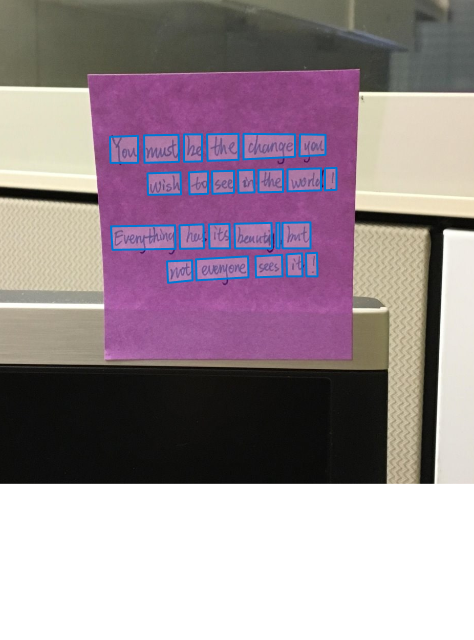 You must be the change you
wish to see in the world!
Everything has its beauty but
not everyone sees it!